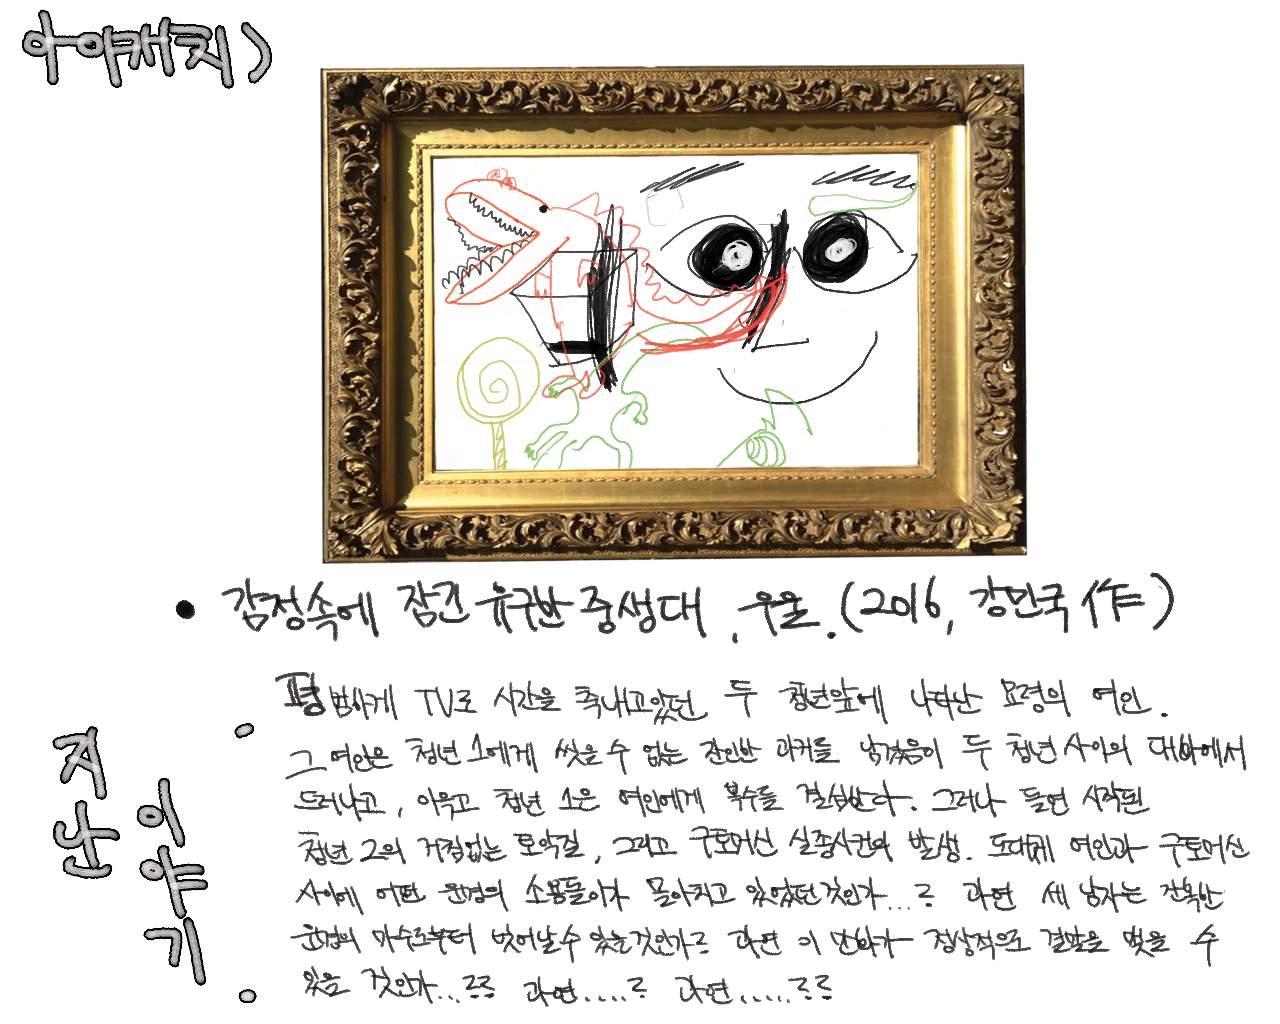 아야캐치)
• 감정속에 잠긴 유구한 중생대, 우울. (2016, 강민국 作)
지난 이야기
평범하게 TV로 시간을 축내고있던 두 청년앞에 나타난 묘령의 여인.
그 여인은 청년 1에게 씻을 수 없는 잔인한 과거를 남겼음이 두 청년 사이의 대화에서
드러나고, 이윽고 청년 1은 여인에게 복수를 결심한다. 그러나 돌연 시작된
청년 2의 거침없는 토악질, 그리고 구토머신 실종사건의 발생. 도대체 여인과 구토머신
사이에 어떤 운명의 소용돌이가 몰아치고 있었던것인가...? 과연 세 남자는 잔혹한
운명의 마수로부터 벗어날수 있는것인가? 과연 이 만화가 정상적으로 결말을 맺을 수
있을 것인가...?? 과연.....? 과연......??